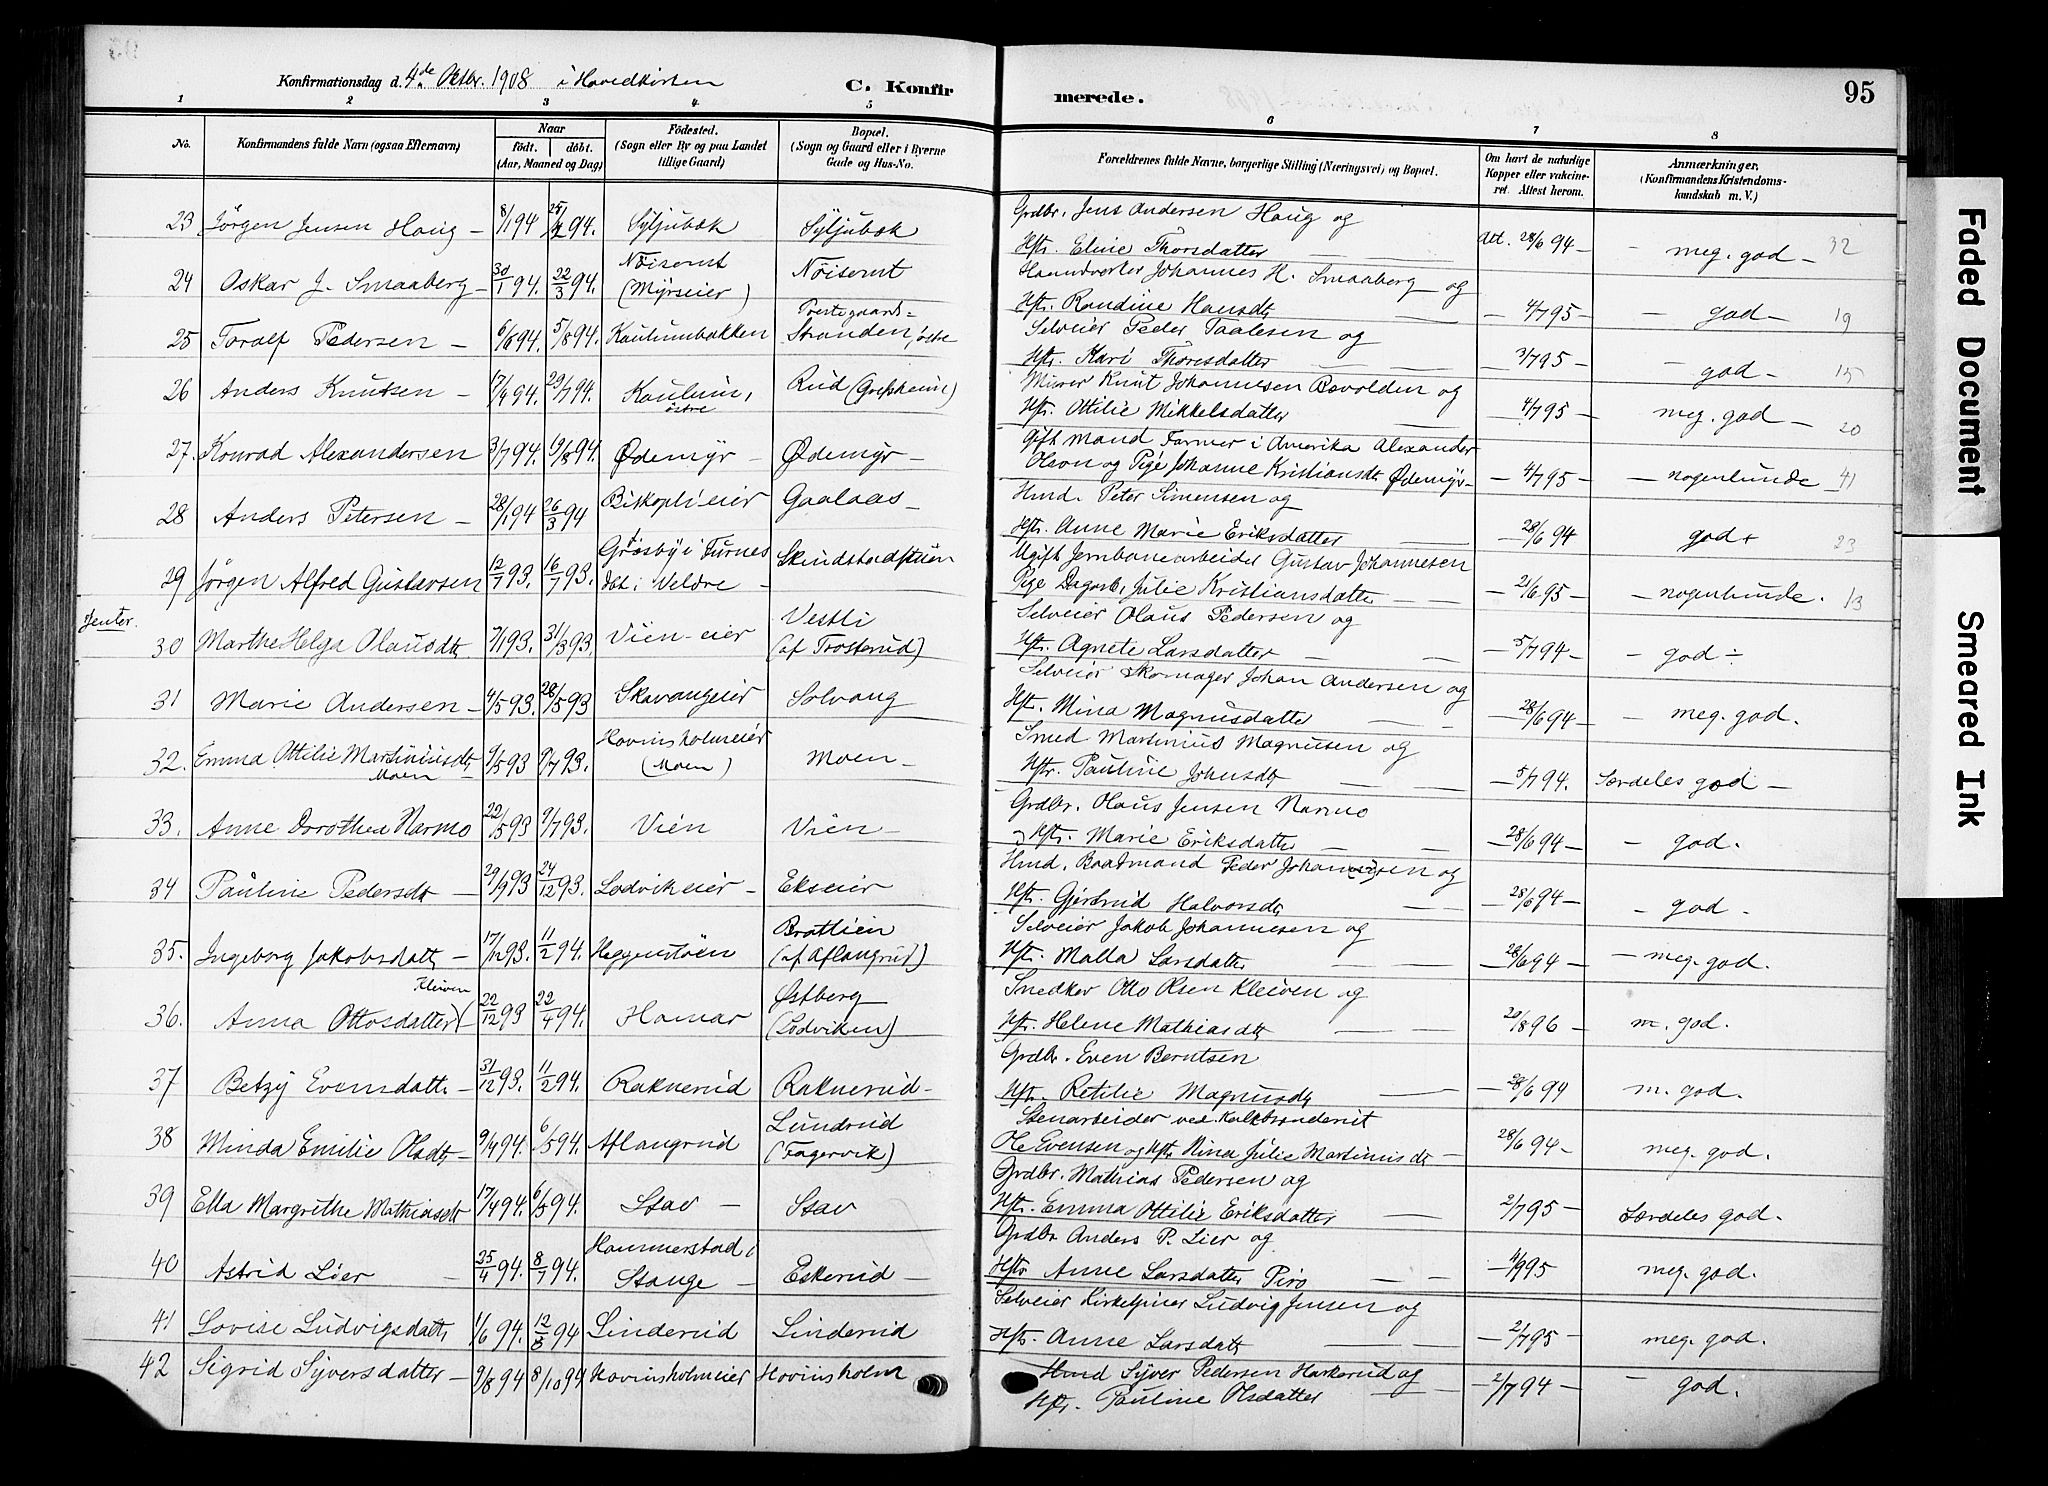 Konfirmationsdag d. 4de Oktbr. 1908 i Hovedkirken C. Konfirmerede. 95
1 2 3 4 5 6 7 8
No. Konfirmandens fulde Navn (ogsaa Efternavn) Naar født. døbt. (Aar, Maaned og Dag) Fødested. (Sogn eller By og paa Landet tillige Gaard) Bopæl. (Sogn og Gaard eller i Byerne Gade og Hus-No. Forældrenes fulde Navne, borgerlige Stilling (Næringsvei) og Bopæl. Om havt de naturlige Kopper eller vakcineret. Attest herom. Anmærkninger, (Konfirmandens Kristendomskundskab m. V.)
Grdbr. Jens Andersen Haug og
23 Jørgen Jensen Haug – 8/1 94 25/2 94. Syljubak Syljubak Hstr. Eline Thorsdatter Att. 28/6 94 – – meg. god – 32
Haandverker Johannes H. Smaaberg og
24 Oskar J. Smaaberg – 30/1 94. 22/3 94. Nøisomt (Myrseier) Nøisomt Hstr. Randine Hansdt – 4/7 95 – – god – 19
Selveier Peder Paalesen og
25 Toralf Pedersen – 6/6 94. 5/8 94. Kaulumbakken Prestegaards= Stranden, østre Hstr. Kari Thoresdatter – 3/7 95 – – god – 15
Murer Knut Johannesen Bovolden og
26 Anders Knutsen – 17/6 94. 29/7 94. Kaulum, østre Rud (Grefsheim) Hstr. Ottilie Mikkelsdatter – 4/7 95 – meg. god – 20
Gift mand Farmer i Amerika Alexander
27. Konrad Alexandersen 3/7 94. 19/8 94. Ødemyr – Ødemyr – Olson og Pige Johanne Kristiansdt Ødemyr – – 4/7 95 – – nogenlunde – 41
Hmd. Peter Simensen og
28 Anders Petersen – 28/1 94 26/3 94 Biskoplieier Gaalaas – Hstr. Anne Marie Eriksdatter – 28/6 94 god + 23
Ugift Jernbanearbeider Gustav Johannesen
29 Jørgen Alfred Gustavsen 12/7 93. 16/7 93. Grøsby i Furnes dbt. i Veldre – Skindstadstuen Pige Dagarb. Julie Kristiansdatter – 21/6 95 – – nogenlunde. 13
Jenter.
Selveier Olaus Pedersen og
30 Marthe Helga Olausdt 7/1 93. 31/3 93. Vien-eier Vestli (af Trosterud) Hstr. Agnete Larsdatter – 5/7 94 – – god ÷
Selveier Skomager Johan Andersen og
31 Marie Andersen – 4/5 93. 28/5 93 Skavangeier Solvang Hstr. Mina Magnusdatter – 28/6 94 – – meg. god.
Smed Martinius Magnusen og
32. Emma Ottilie Martiniusdt Moen 9/5 93 9/7 93. Hovinsholmeier (Moen) Moen – Hstr. Pauline Johnsdt – 5/7 94. Særdeles god –
Grdbr. Olaus Jensen Narmo
33. Anne Dorothea Narmo 22/5 93 9/7 93. Vien Vien – og Hstr. Marie Eriksdatter – 28/6 94 – – god.
Hmd. Baatmand Peder Johannesen og
34 Pauline Pedersdt – 29/9 93 24/12 93. Lodvikeier – Ekseier Hstr. Gjertrud Halvorsdt – 28/6 94 – – god –
Selveier Jakob Johannesen og
35. Ingeborg Jakobsdatt – 17/12 93. 11/2 94. Heggenstøen Bratlien (af Aflangrud) Hstr. Malla Larsdatter – 28/6 94 – – meg. god.
Snedker Otto Olsen Kleiven og
36. Anna Ottosdatter (Kleiven 22/12 93 22/4 94. Hamar Østberg (Lodviken) Hstr. Helene Mathiasdt – 20/8 96 – m. god.
Grdbr. Even Berntsen
37 Betzy Evensdatt – 31/12 93. 11/2 94. Raknerud Raknerud – Hstr. Retilie Magnusdt – 28/6 94 m. god.
Stenarbeider ved Kalkbrænderiet
38 Minda Emilie Olsdt – 9/4 94. 6/5 94. Aflangrud Lundrud (Fagervik) Ole Evensen og Hstr. Nina Julie Martiniusdt – 28/6 94 – meg. god.
Grdbr. Mathias Pedersen og
39 Ella Margrethe Mathiasdt 17/4 94. 6/5 94. Stav – Stav Hstr. Emma Ottilie Eriksdatter – 2/7 95 – Særdeles god.
Grdbr Anders P. Lier og
40 Astrid Lier – 25/4 94. 8/7 94. Hammerstad i Stange – Eskerud – Hstr Anne Larsdatter Piro – 4/9 95 meg. god.
Selveier Kirketjener Ludvig Jensen og
41 Lovise Ludvigsdatt 1/6 94. 12/8 94 Linderud Linderud Hstr. Anne Larsdatt – 2/7 95 – meg. god.
Hmd Syver Pedersen Harkerud og
42 Sigrid Syversdatter – 9/8 94 8/10 94 Hovinsholmeier Hovinsholm Hstr. Pauline Olsdatter – 2/7 94 – – god.
Faded Document
Smeared Ink